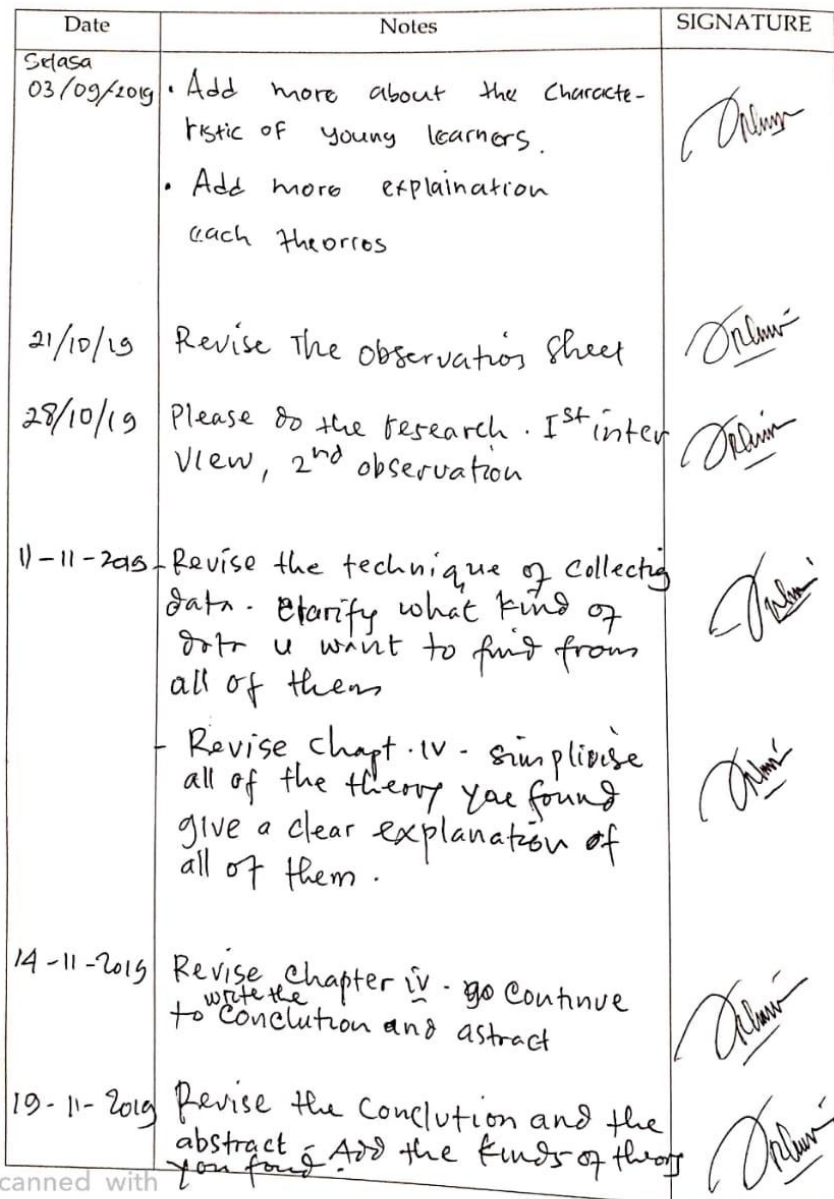 Date Notes SIGNATURE
Selasa
03/09/2019 • Add more about the characte-
ristic of young learners.
• Add more explaination
each theorres
21/10/19 Revise The observation sheet
28/10/19 Please do the research. Ist inter
view, 2nd observation
11-11-2019 - Revise the technique of collectig
data. Clarify what kind of
data u want to find from
all of them
- Revise chapt. IV - simplivise
all of the theory you found
give a clear explanation of
all of them.
14-11-2019 Revise chapter iv - go continue
to write the conclution and astract
19-11-2019 Revise the conclution and the
abstract - Add the kinds of theory
you found.
canned with